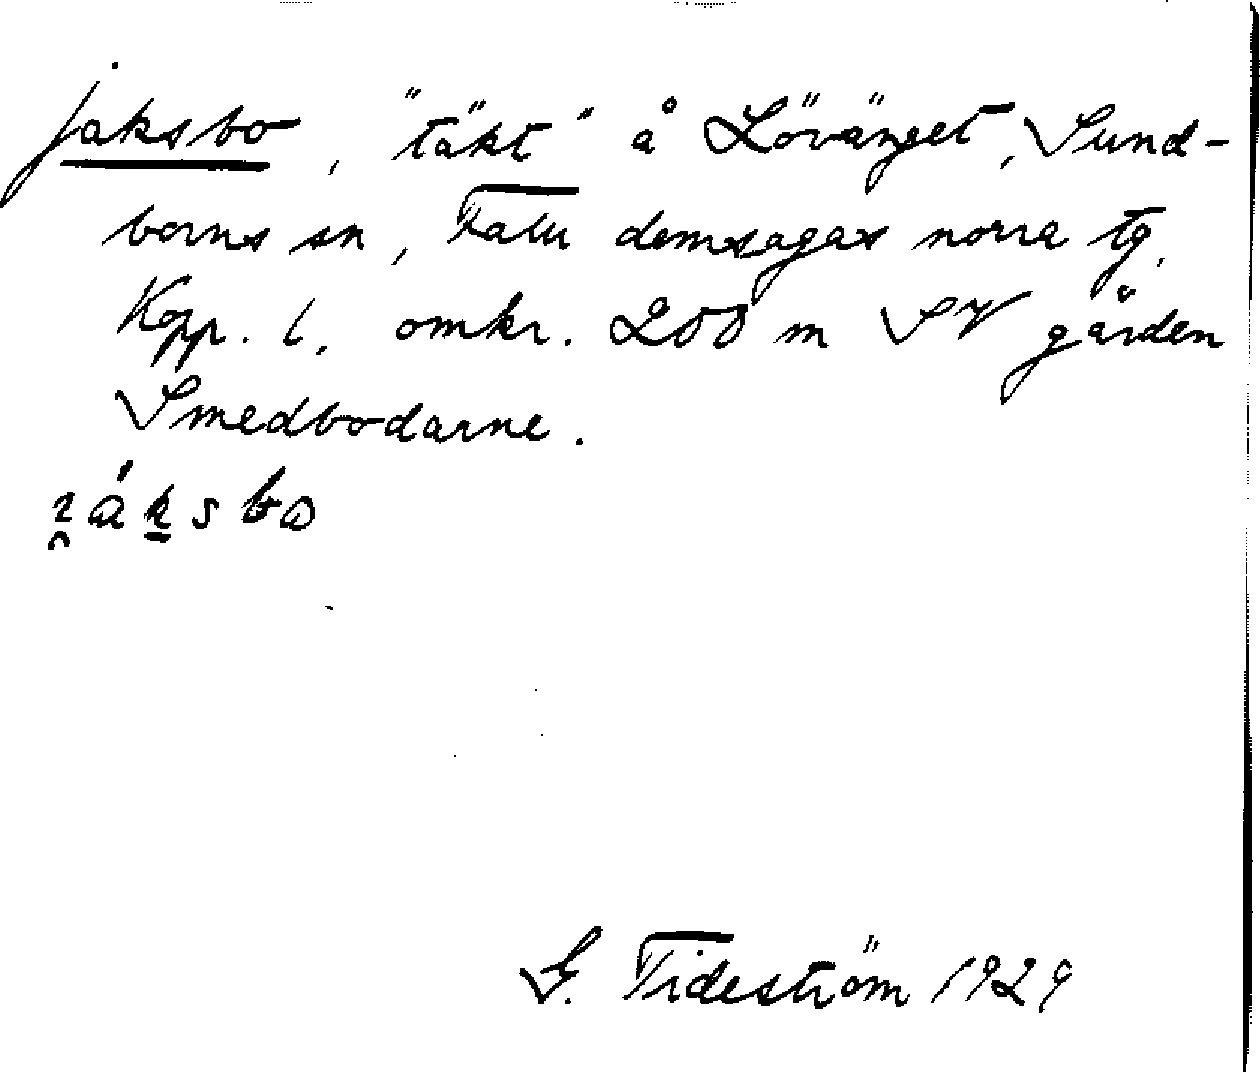 jaksbo, "täkt" å Lövänget, Sund-
borns sn, Falu domsagas norra tg,
Kopp. l. omkr. 200 m SV gården
Smedbodarne.
G. Tideström 1929